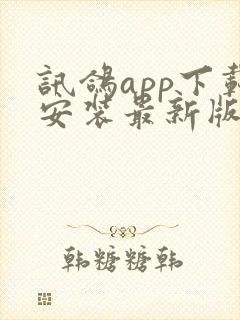 訊鴿app下載
安裝最新版
韩糖糖韩